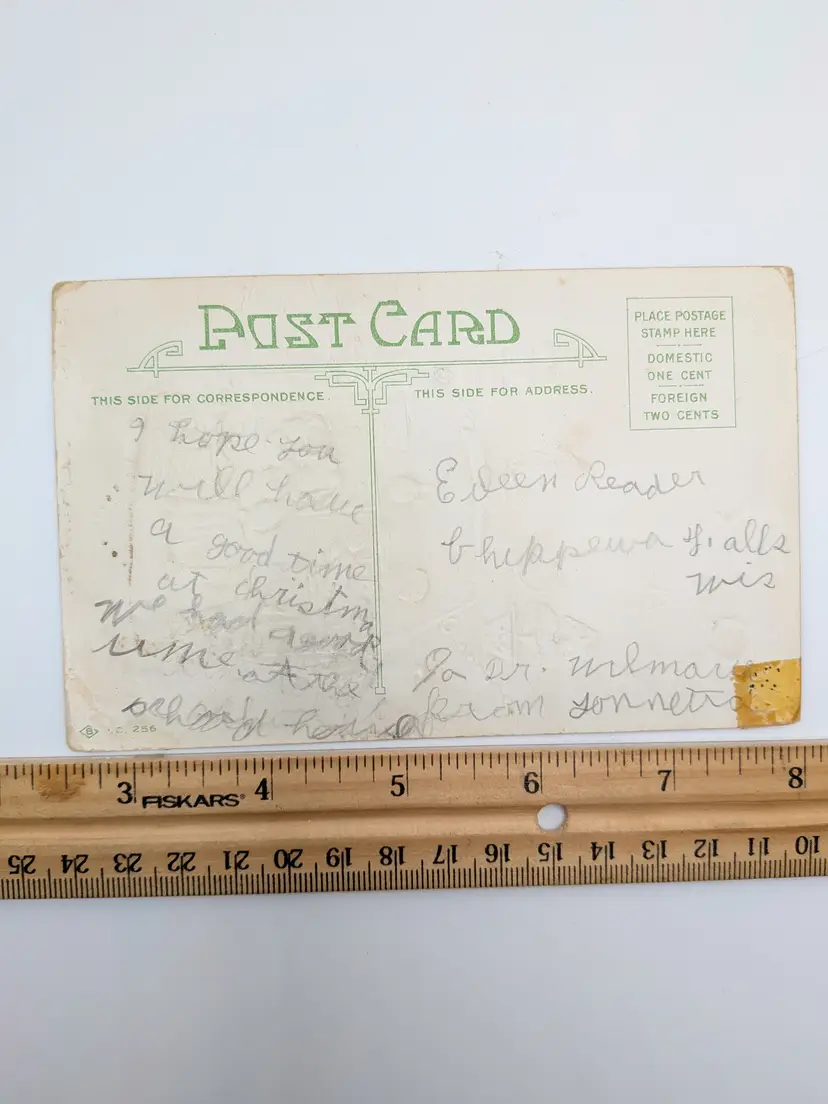 POST CARD
THIS SIDE FOR CORRESPONDENCE.
THIS SIDE FOR ADDRESS.
PLACE POSTAGE
STAMP HERE
DOMESTIC
ONE CENT
FOREIGN
TWO CENTS
I hope you
will have
a good time
at christm
We had
time at the
school house
Eileen Reader
Chippewa Falls
Wis
To Dr.
from
B
C. 256
3 FISKARS 4 5 6 7 8
25 24 23 22 21 20 19 18 17 16 15 14 13 12 11 10